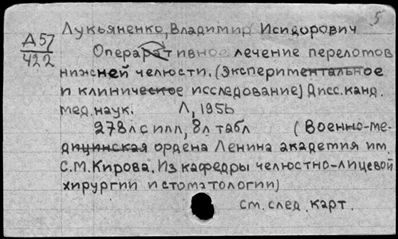 5
Лукьяненко, Владимир Исидорович
Д57
422
Оперативное лечение переломов
нижней челюсти. (Экспериментальное
и клиническое исследование) Дисс. канд.
мед. наук. Л, 1956
278л с илл, 8л табл (Военно-ме-
дицинская ордена Ленина академия им.
С.М. Кирова. Из кафедры челюстно-лицевой
хирургии и стоматологии)
см. след. карт.